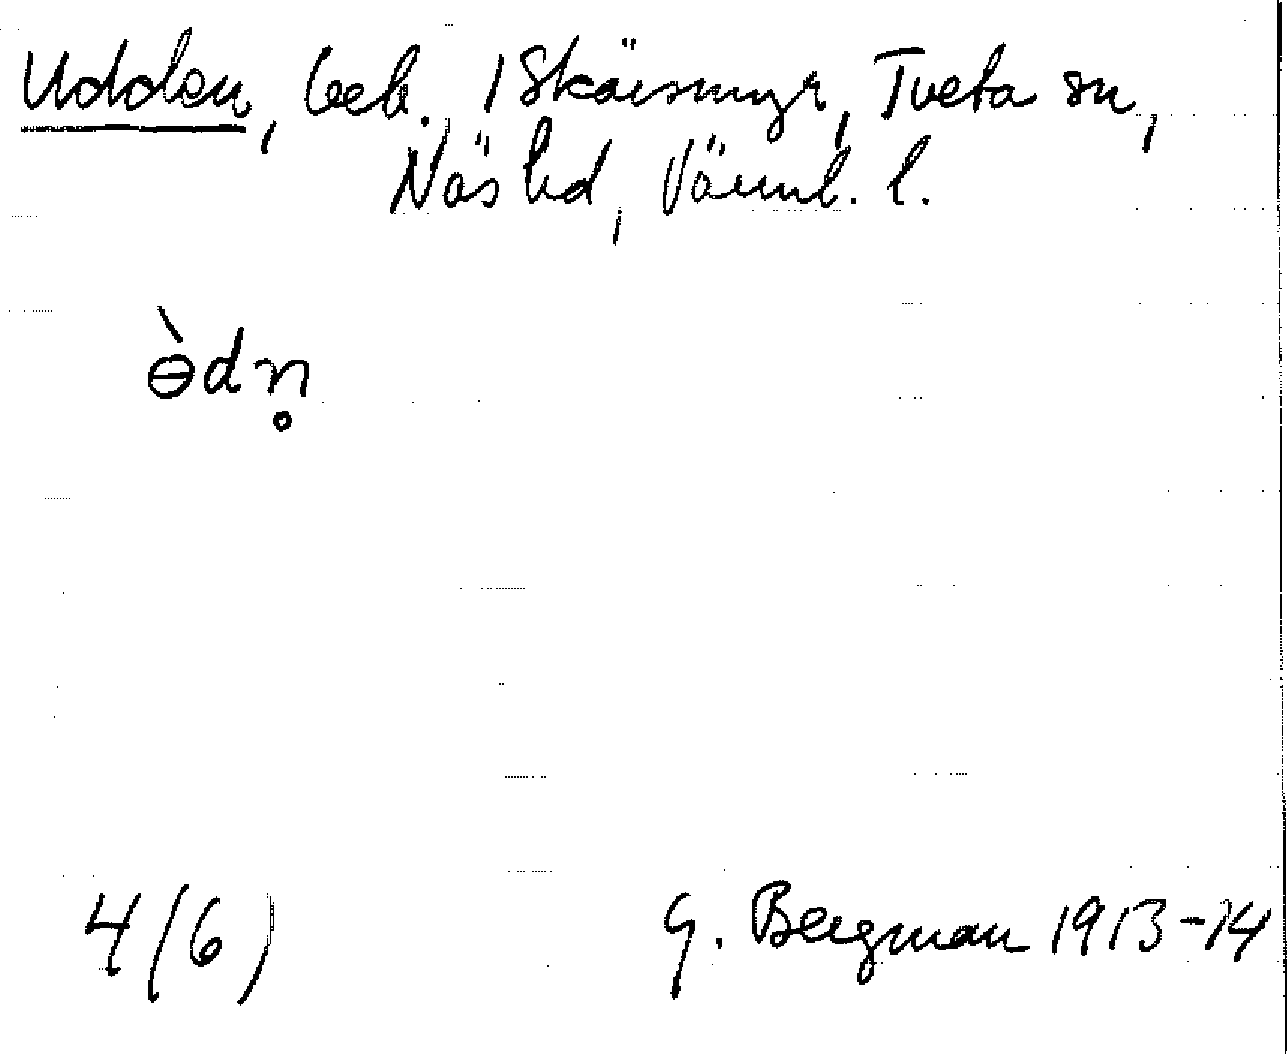 Udden, beb. / Skärsmyr, Tveta sn,
Näs hd, Värml. l.
ɵ̀dn̥
4 (6)
G. Bergman 1913-14